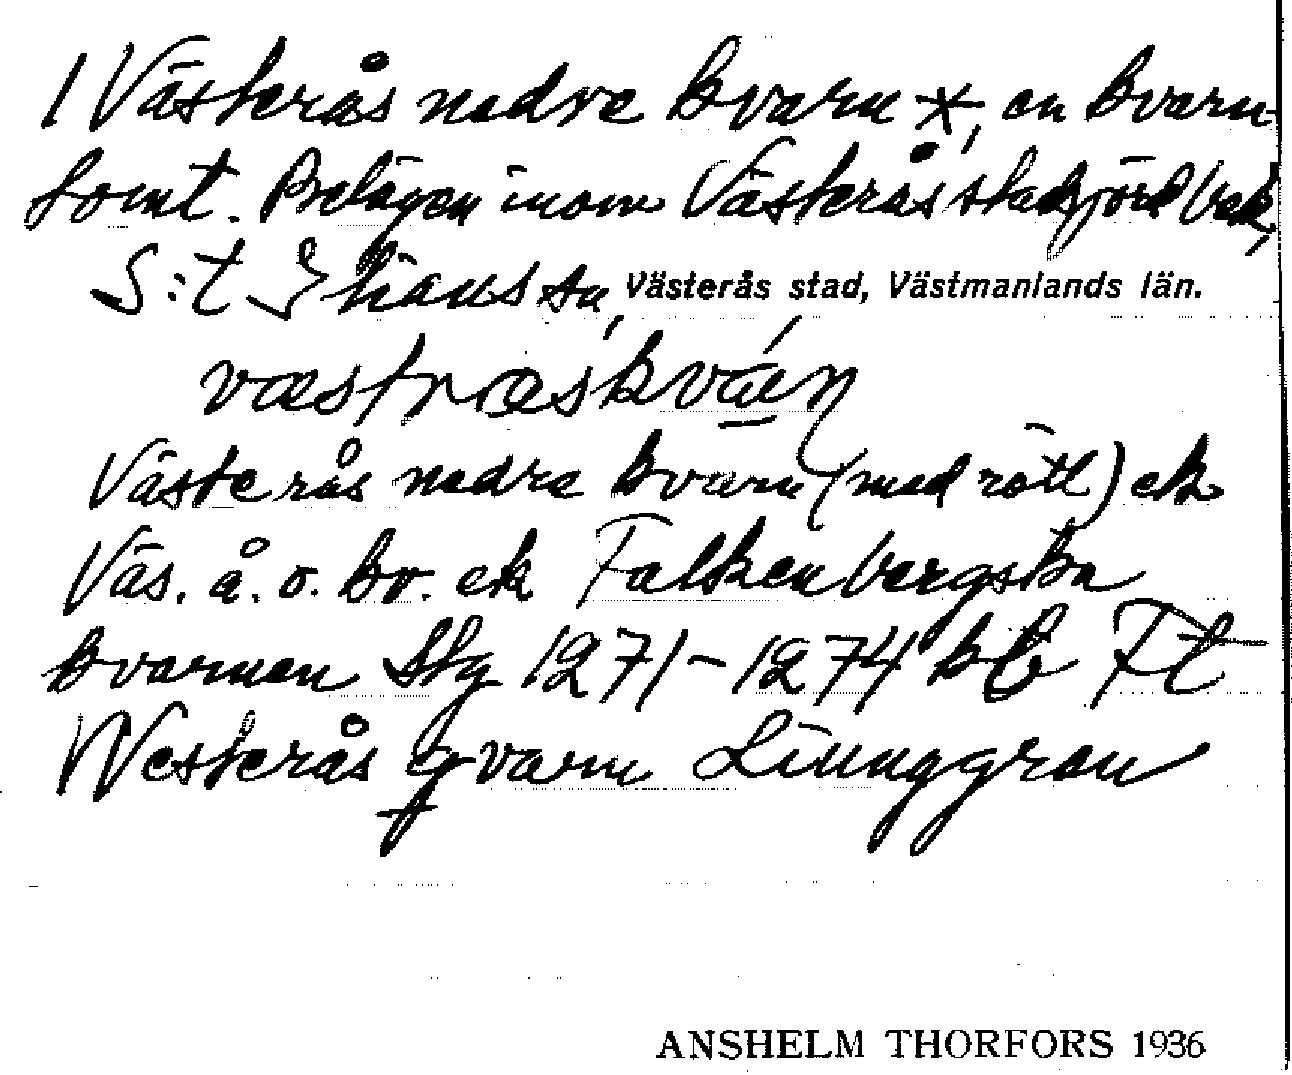 1 Västerås nedre kvarn x, en kvarn-
tomt. Belägen inom Västerås stadsjord
S:t Ilians sn, Västerås stad, Västmanlands län.
væstræskván
Västerås nedre kvarn (med rätt) ek
Väs. å. o. kv. ek Falkenbergska
kvarnen Stg 1271-1274
Westerås qvarn Ljunggren
ANSHELM THORFORS 1936